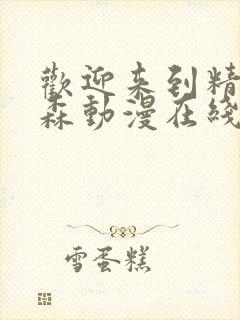 歡迎来到精
森動漫在綫
雪蛋糕